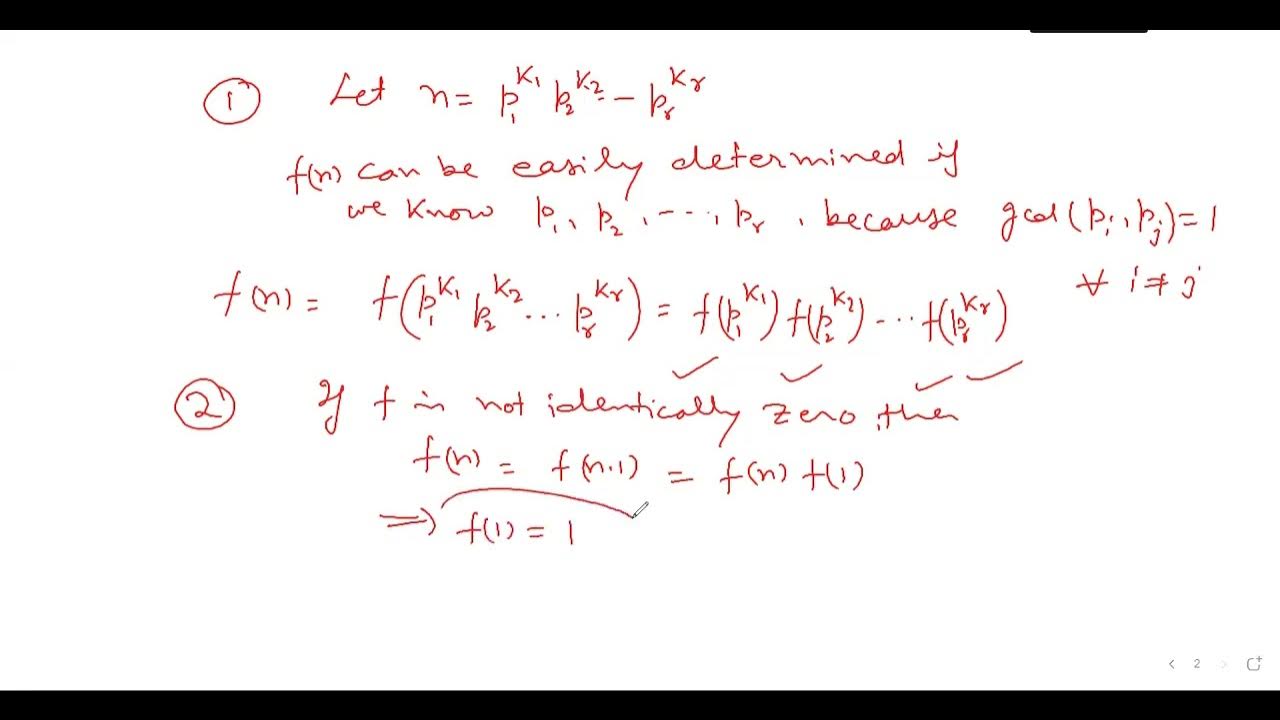 ① Let n = p₁^K₁ p₂^K₂ -- p_r^K_r
f(n) can be easily determined if
we know p₁, p₂, ---, p_r, because gcd(p_i, p_j) = 1
∀ i ≠ j
f(n) = f(p₁^K₁ p₂^K₂ ... p_r^K_r) = f(p₁^K₁) f(p₂^K₂) -... f(p_r^K_r)
② If f is not identically zero, then
f(n) = f(n·1) = f(n) f(1)
⇒ f(1) = 1
2